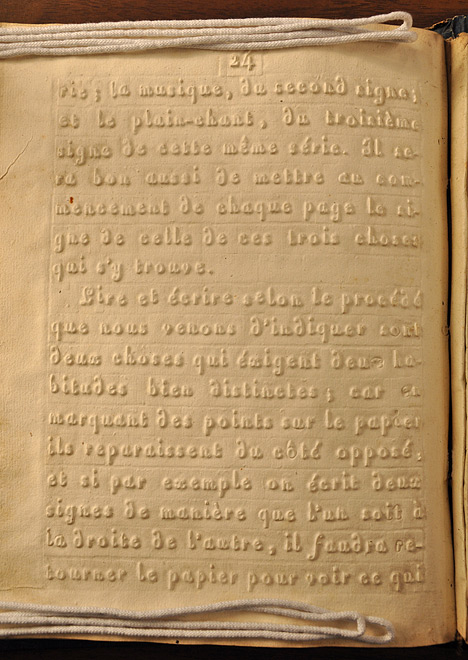 24
rie; la musique, du second signe;
et le plain-chant, du troisième
signe de cette même série. Il se-
ra bon aussi de mettre au com-
mencement de chaque page le si-
gne de celle de ces trois choses
qui s'y trouve.
Lire et écrire selon le procédé
que nous venons d'indiquer sont
deux choses qui éxigent deux ha-
bitudes bien distinctes; car en
marquant des points sur le papier
ils reparaissent du côté opposé;
et si par exemple on écrit deux
signes de manière que l'un soit à
la droite de l'autre, il faudra re-
tourner le papier pour voir ce qui